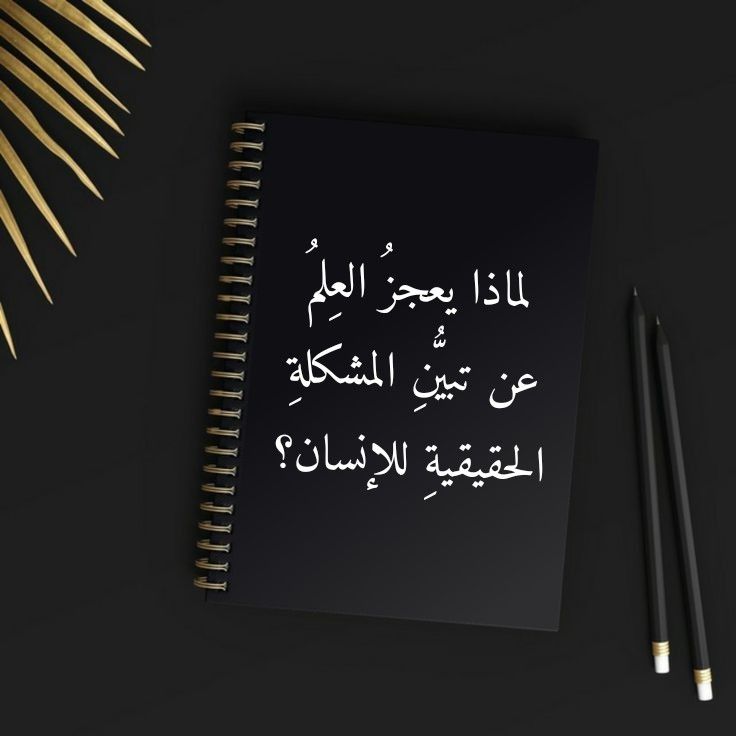 لماذا يعجزُ العِلمُ
عن تبيُّنِ المشكلةِ
الحقيقيةِ للإنسان؟